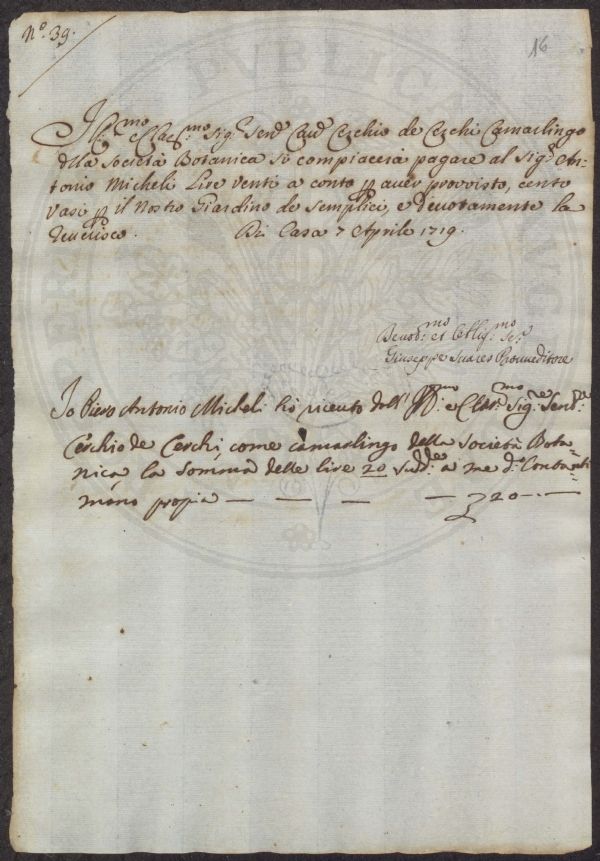 N.o 39.
16
Ill.mo e Clar.mo Sig.r Send.e Cav.e Cerchio de Cerchi Camarlingo
della Società Botanica si compiaccia pagare al Sig.r An-
tonio Micheli Lire venti a conto p aver provvisto, cento
Vasi p il Nostro Giardino de Semplici, e devotamente la
reverisco. Di Casa 7 Aprile 1719.
Devot.mo et Obblig.mo Se.r
Giuseppe Suares Provveditore
Io Piero Antonio Micheli hò riceuto dall' Ill.mo e Clar.mo Sig.re Send.re
Cerchio de Cerchi, come camarlingo della Società Bota=
nica la Somma delle lire 20 Sud.de a me d.o Contanti
mano propia — — — — — £ 20 -.-